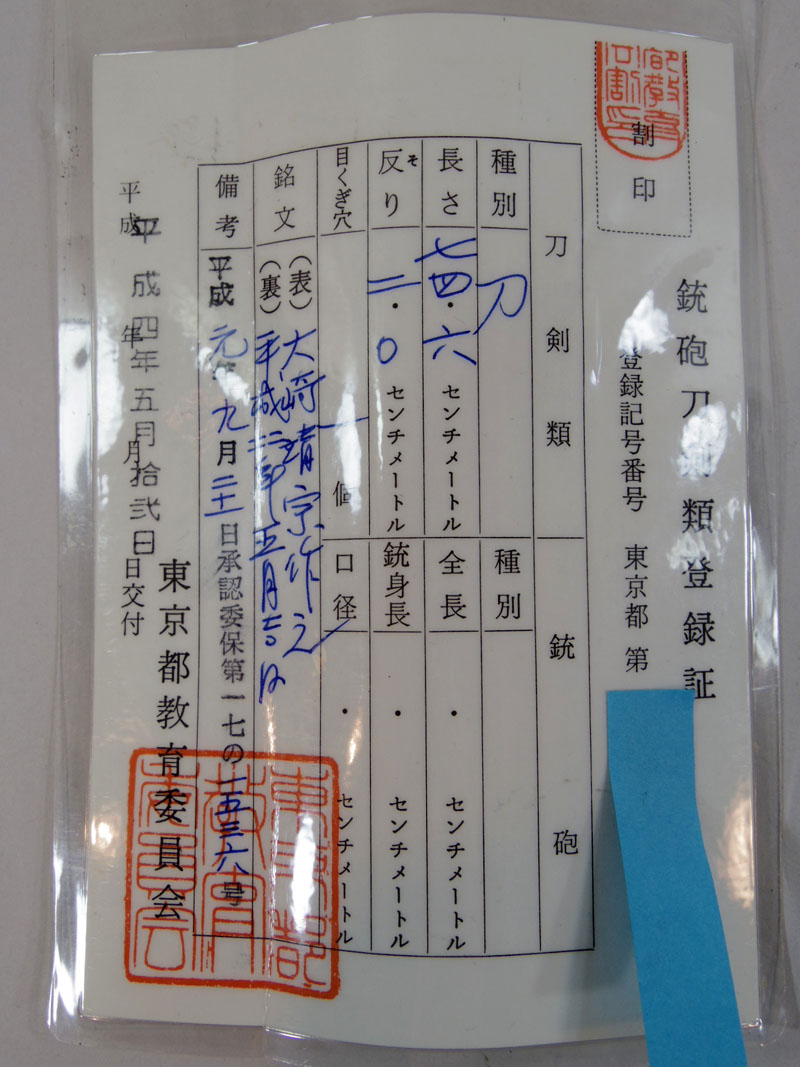 割印
銃砲刀剣類登録証
登録記号番号 東京都 第
刀剣類
銃砲
種別 刀
種別
長さ 七四・六 センチメートル
全長 ・ センチメートル
反り 二・〇 センチメートル
そ
銃身長 ・ センチメートル
目くぎ穴 一 個
口径 ・ センチメートル
銘文 (表) 大﨑靖宗作之
(裏) 平成二年五月吉日
備考 平成元年九月二十一日承認委保第一七の一五三六号
平成 年 月 日交付
平成四年五月拾弐日
東京都教育委員会